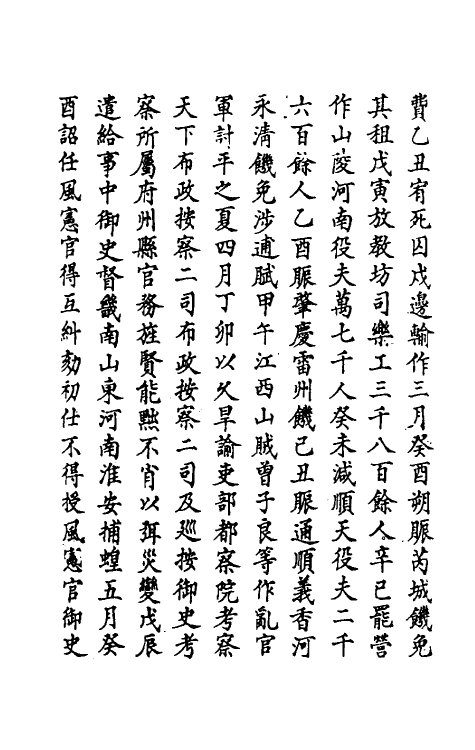 費乙丑宥死囚戍邊輸作三月癸酉朔賑芮城饑免
其租戊寅放教坊司樂工三千八百餘人辛巳罷營
作山陵河南役夫萬七千人癸未減順天役夫二千
六百餘人乙酉賑肇慶雷州饑己丑賑通順義香河
永清饑免涉逋賦甲午江西山賊曾子良等作亂官
軍討平之夏四月丁卯以久旱諭吏部都察院考察
天下布政按察二司布政按察二司及廵按御史考
察所屬府州縣官務旌賢能黜不肖以弭災變戊辰
遣給事中御史督畿南山東河南淮安捕蝗五月癸
酉詔任風憲官得互糾劾初仕不得授風憲官御史